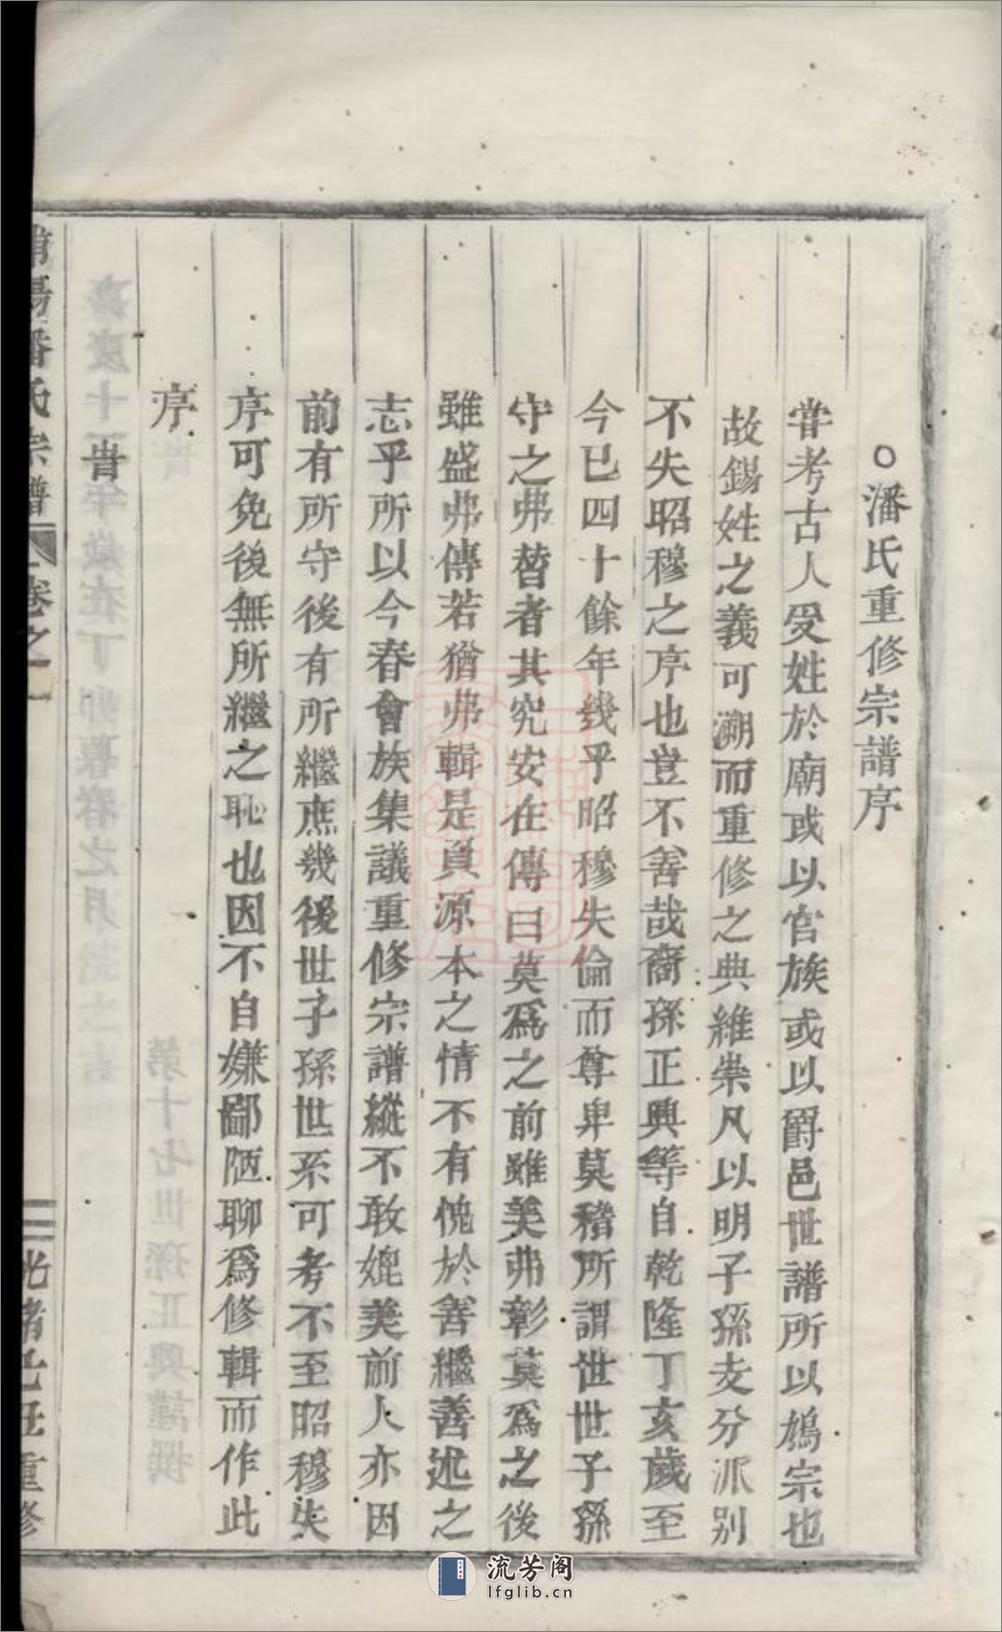 ○潘氏重修宗譜序
甞考古人受姓於廟或以官族或以爵邑世譜所以鳩宗也
故錫姓之義可溯而重修之典維崇凡以明子孫支分派別
不失昭穆之序也豈不善哉裔孫正興等自乾隆丁亥歲至
今已四十餘年幾乎昭穆失倫而尊卑莫稽所謂世世子孫
守之弗替者其究安在傳曰莫爲之前雖美弗彰莫爲之後
雖盛弗傳若猶弗輯是負源本之情不有愧於善繼善述之
志乎所以今春會族集議重修宗譜縱不敢媲美前人亦因
前有所守後有所繼庶幾後世子孫世系可考不至昭穆失
序可免後無所繼之恥也因不自嫌鄙陋聊爲修輯而作此
序
旹
潘氏宗譜 卷之一 三 光緒重修
流芳阁
lfglib.cn